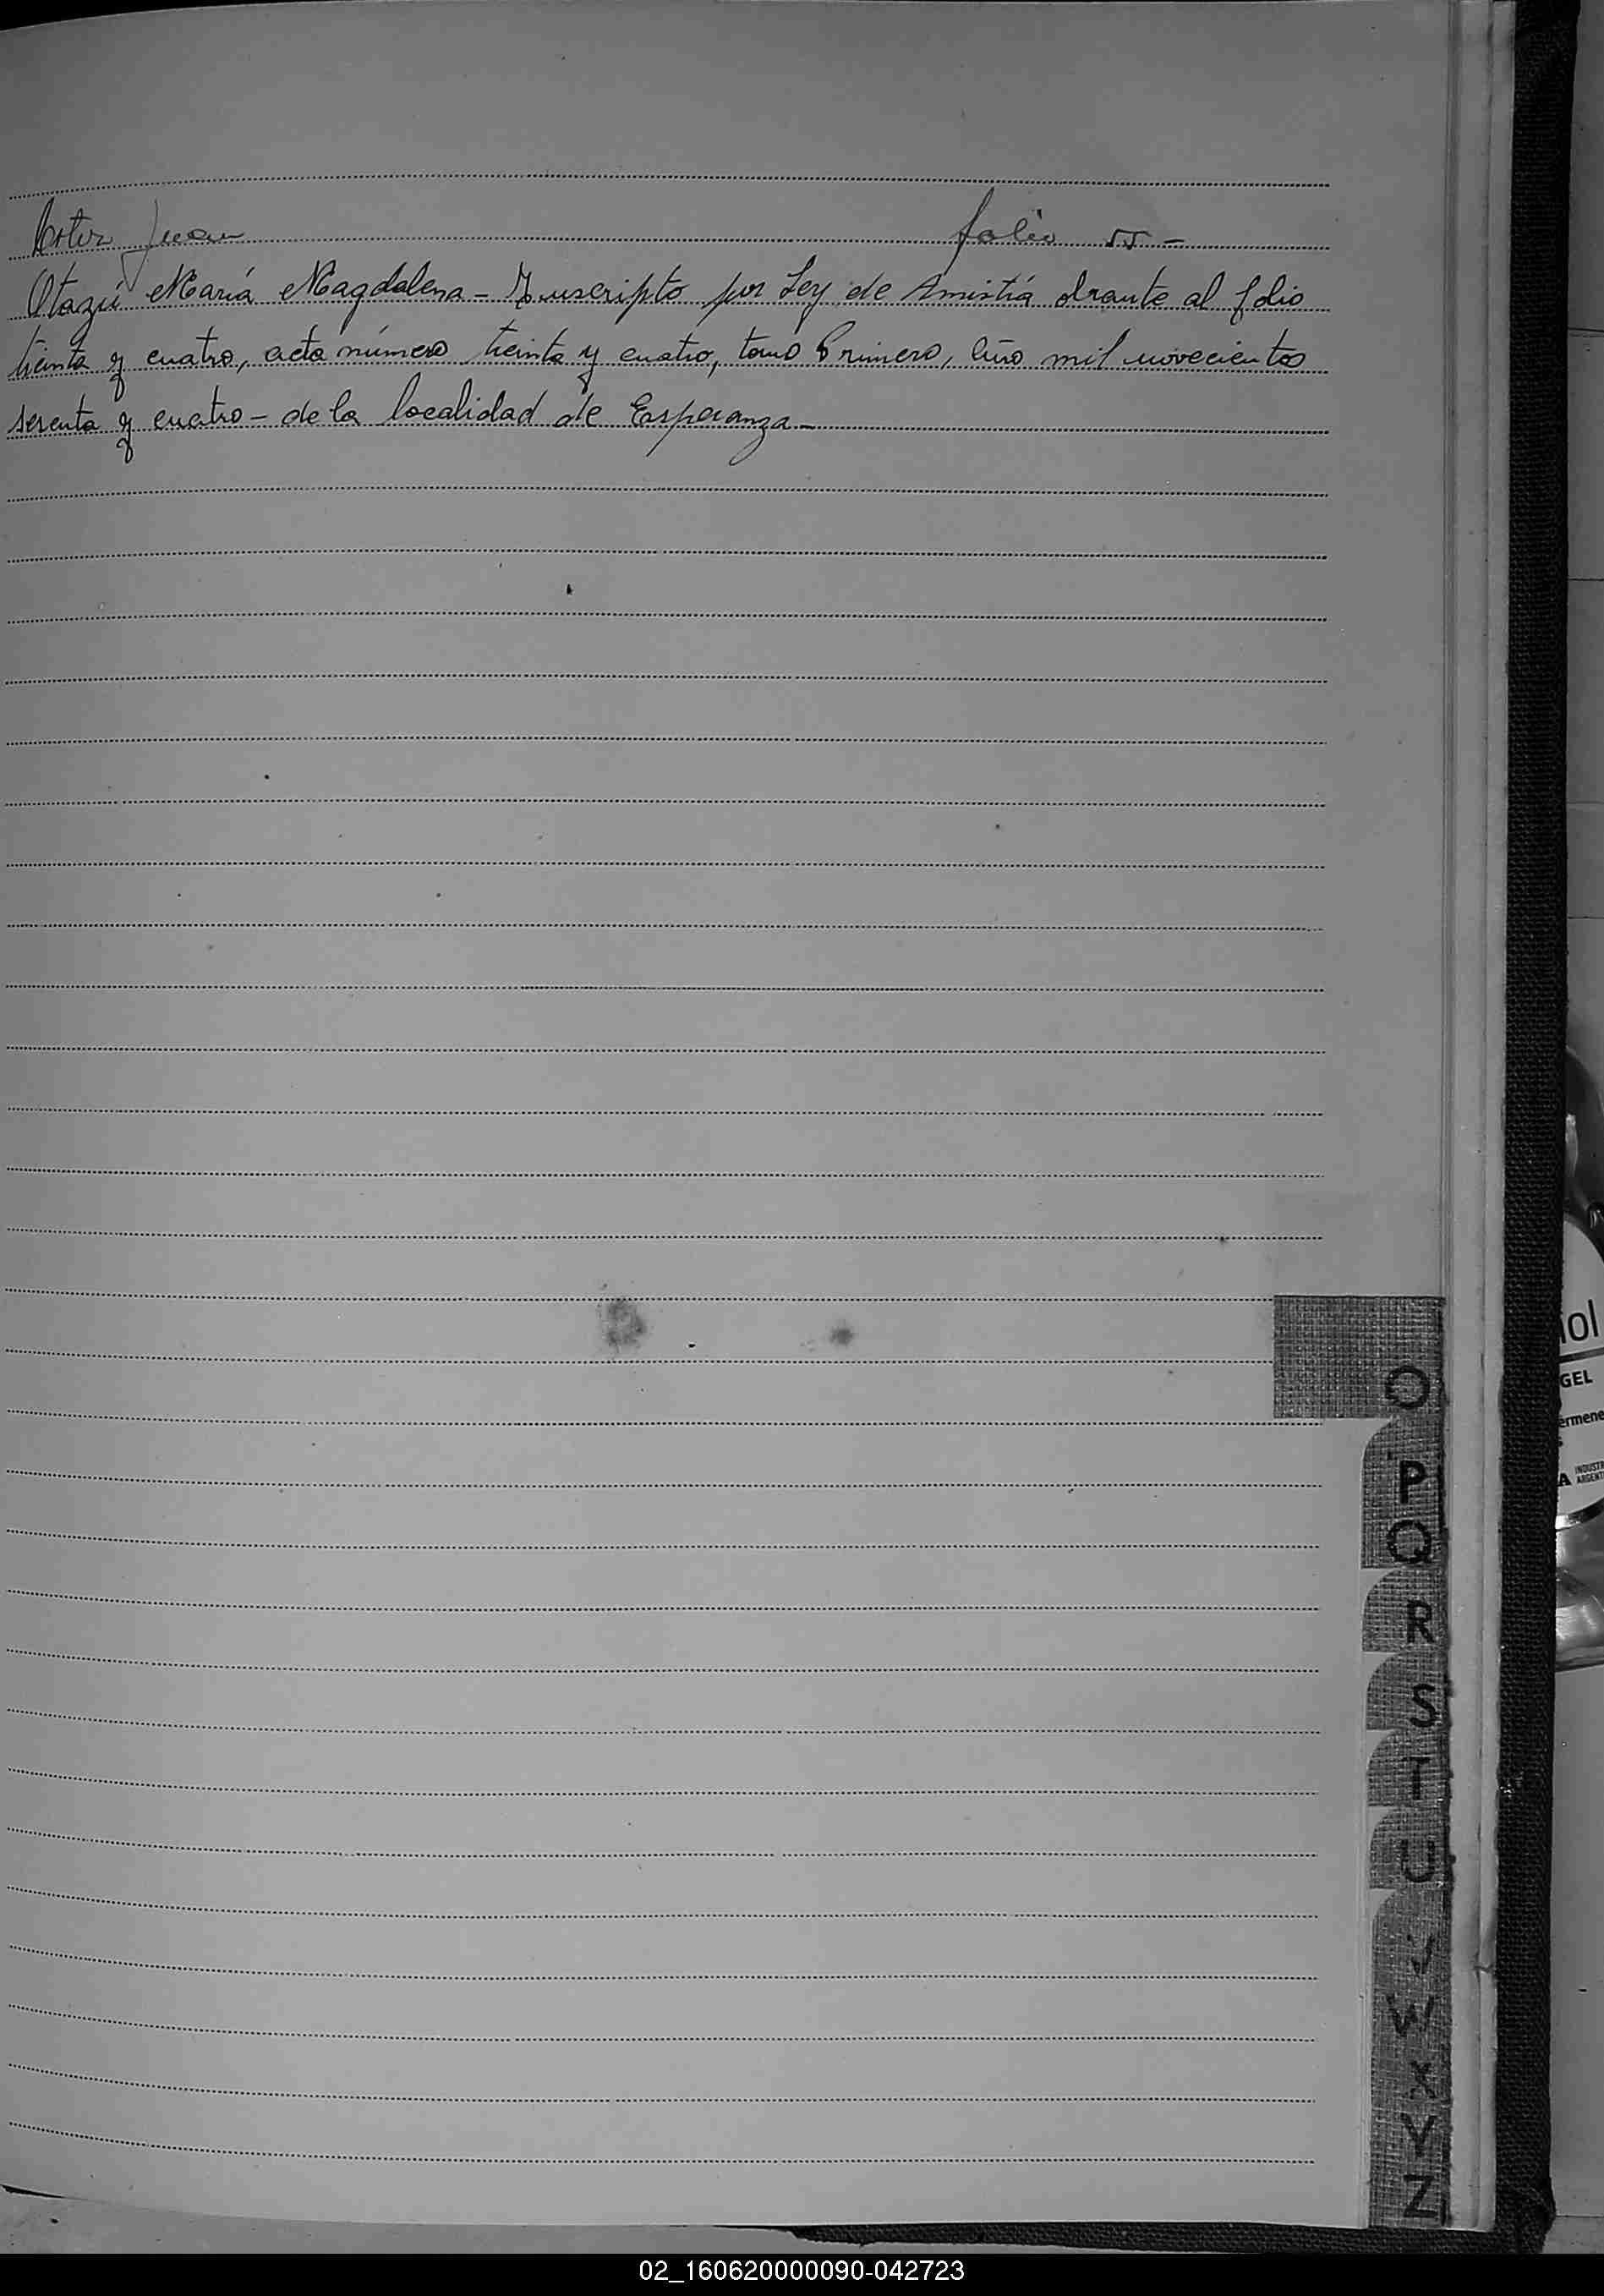 Ortiz Juan folio 55 -
Otazú María Magdalena - Inscripto por Ley de Amistía obrante al folio
treinta y cuatro, acta número treinta y cuatro, tomo Primero, Año mil novecientos
sesenta y cuatro - de la localidad de Esperanza -
O
P
Q
R
S
T
U
V
W
X
Y
Z
ol
GEL
ermene
A INDUSTR
ARGENT
02_160620000090-042723